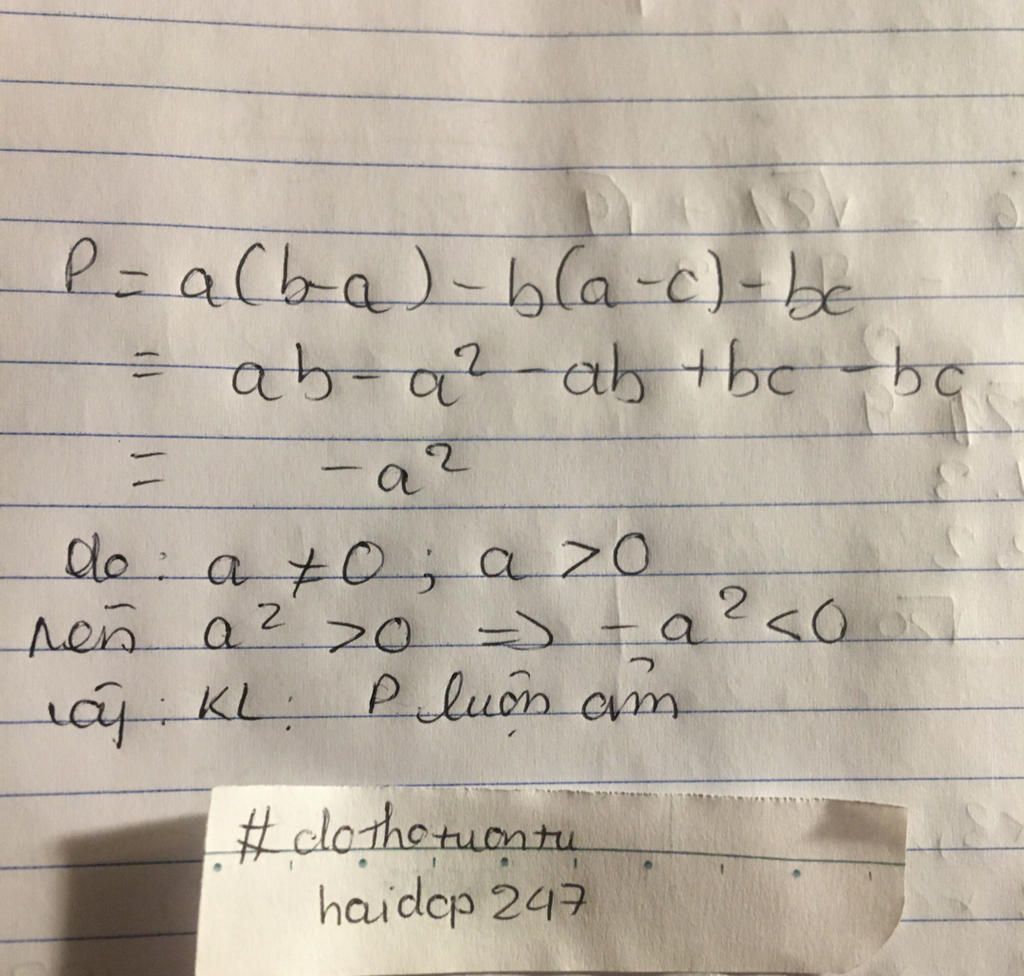 P = a(b-a) - b(a-c) - bc
= ab - a² - ab + bc - bc
= -a²
do: a ≠ 0; a > 0
nên a² > 0 => -a² < 0
vậy: KL: P luôn âm
# dothotuontu
haidcp 247